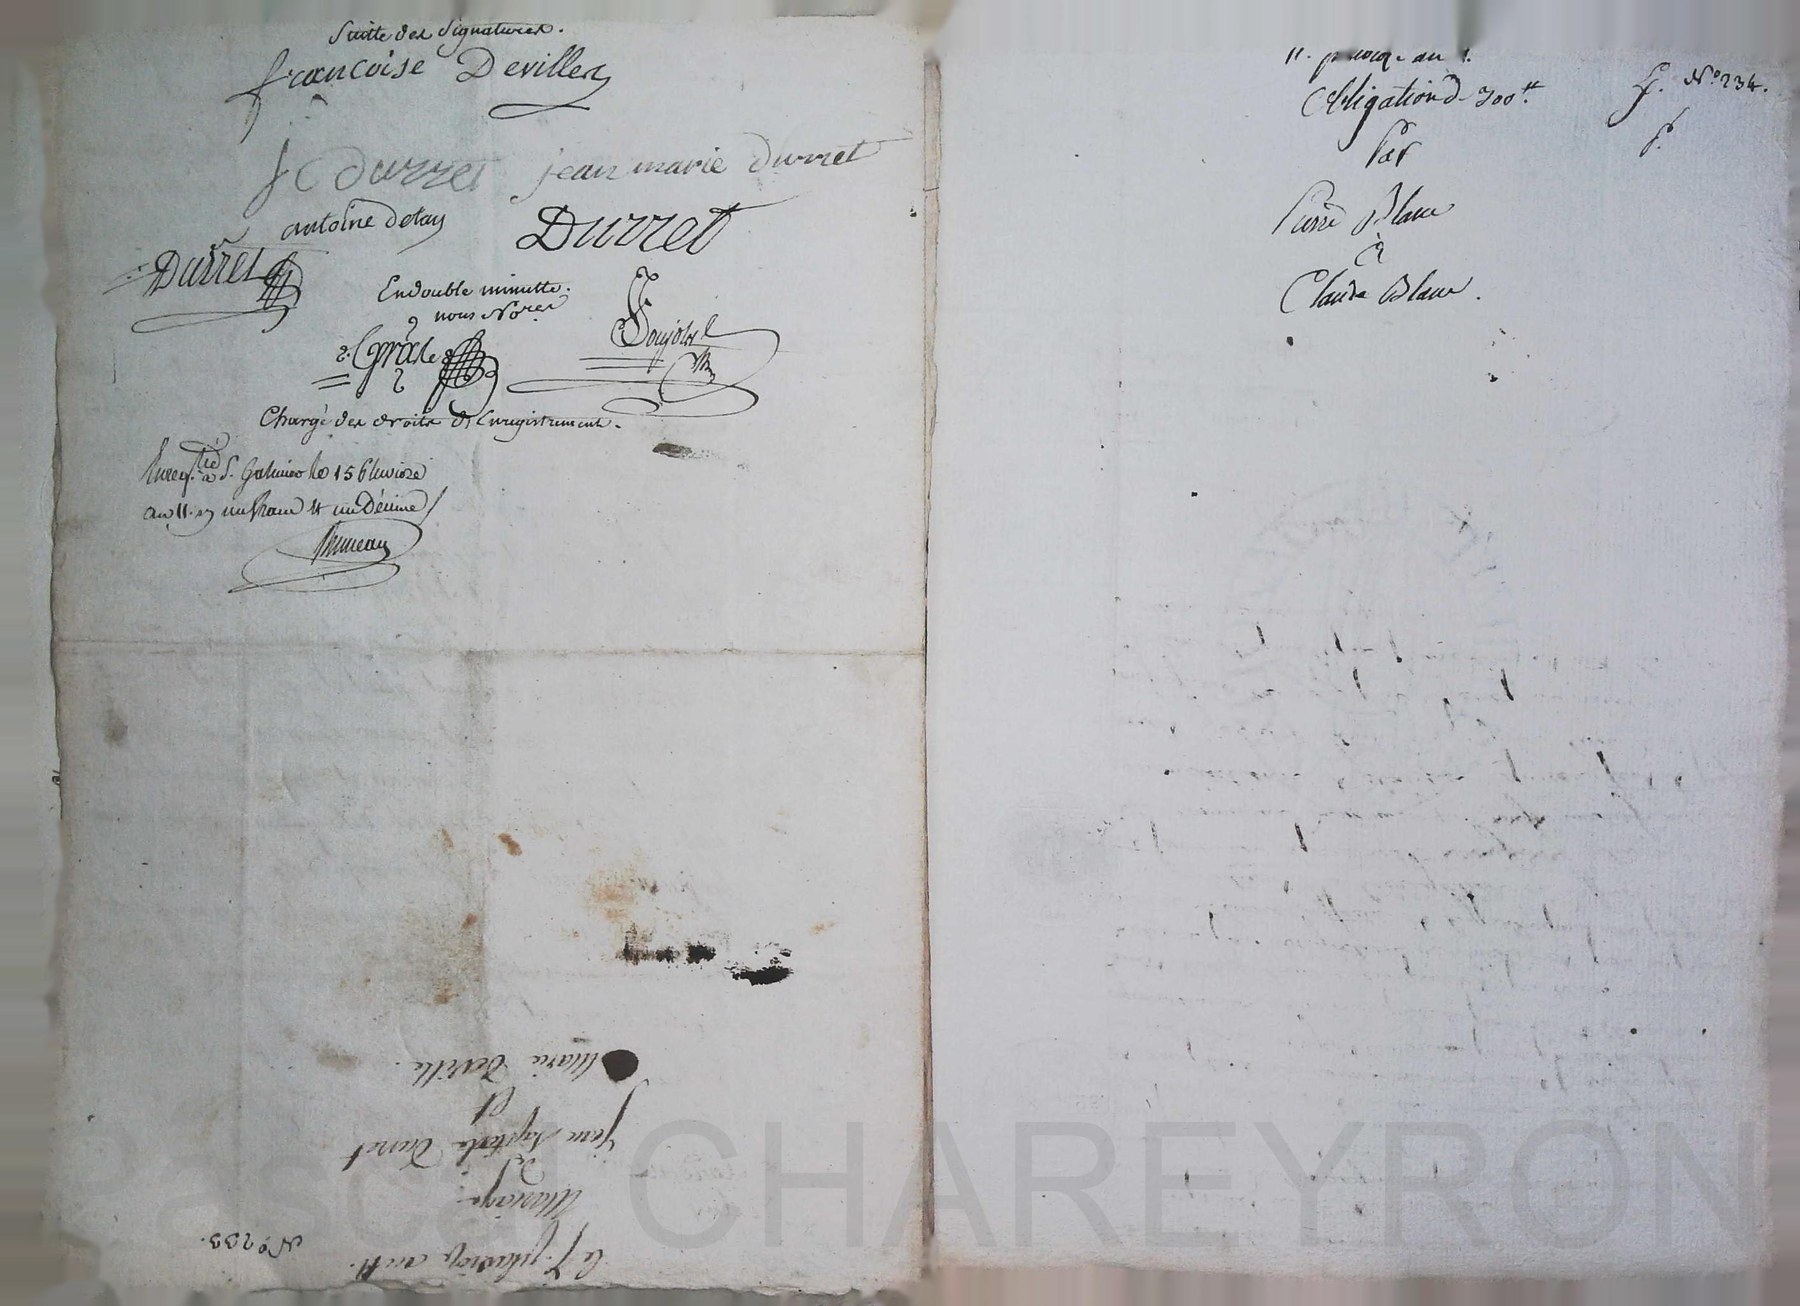 Suitte des Signatures.
francoise Deville
JC Durret jean marie durret
antoine delay Durret
Durret
En double minutte.
nous No.res
Chargé des droits d'Enregistrement.
Enreg.tré à S. Galmier le 15 pluviose
an 11. un franc et un Décime
Bruneau
N.o 233.
le pluviose an 11.
Mariage
de
Jean Baptiste Durret
et
Marie deville.
11. an
Obligation de 300tt.
Par
Pierre Blanc
a
Claude Blanc.
N.o 234.
Pascal CHAREYRON